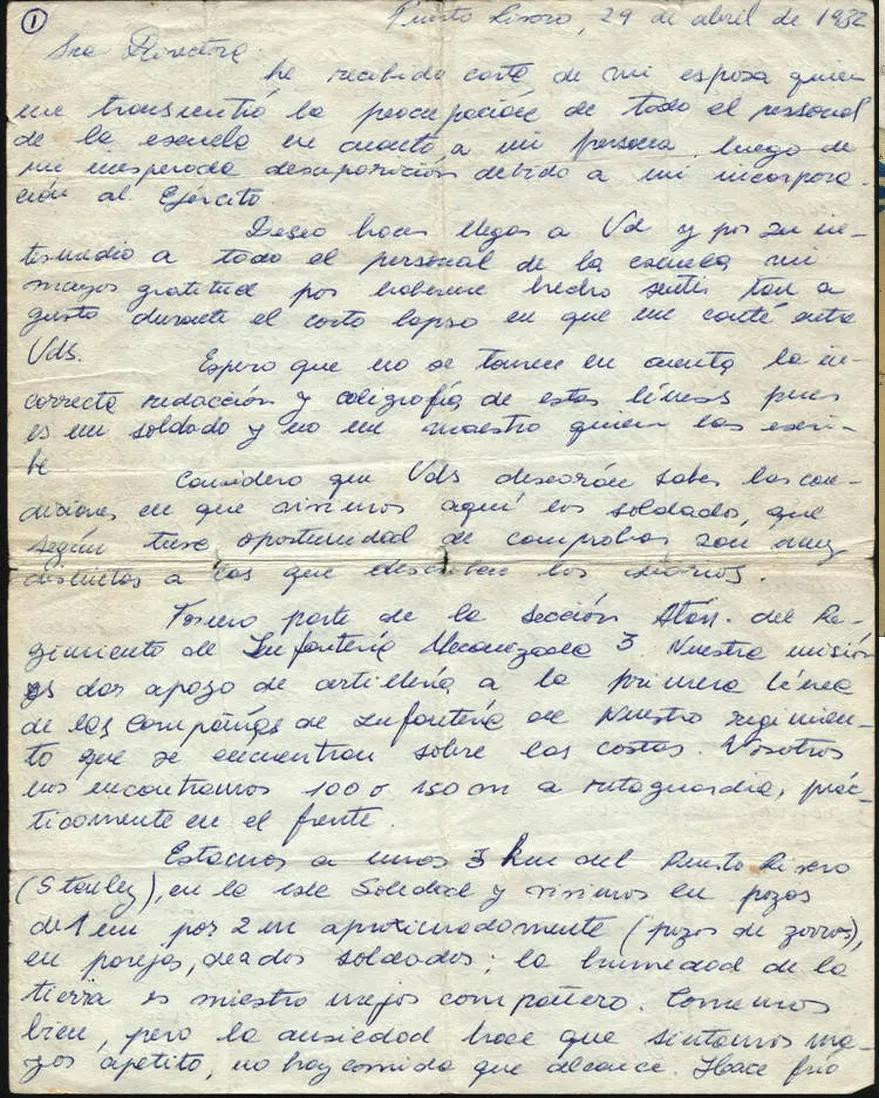 1
Puerto Rivero, 29 de abril de 1982
Sra Directora
he recibido carta de mi esposa quien
me transmitió la preocupación de todo el personal
de la escuela en cuanto a mi persona, luego de
mi inesperada desaparición debido a mi incorpora-
ción al Ejército.
Deseo hacer llegar a Vd y por su in-
termedio a todo el personal de la escuela mi
mayor gratitud por haberme hecho sentir tan a
gusto durante el corto lapso en que me conté entre
Vds.
Espero que no se tome en cuenta la in-
correcta redacción y caligrafía de estas líneas pues
es un soldado y no un maestro quien las escri-
be
Considero que Vds desearán saber las con-
diciones en que vivimos aquí los soldados, que
según tuve oportunidad de comprobar son muy
distintas a las que describen los diarios.
Formo parte de la sección Atan. del Re-
gimiento de Infantería Mecanizada 3. Nuestra misión
es dar apoyo de artillería a la primera línea
de las Compañías de Infantería de Nuestro regimien-
to que se encuentran sobre las costas. Nosotros
nos encontramos 100 o 150 m a retaguardia, prác-
ticamente en el frente.
Estamos a unos 3 km del Puerto Rivero
(Stanley), en la isla Soledad y vivimos en pozos
de 1 m por 2 m aproximadamente (pozos de zorros),
en parejas, de a dos soldados; la humedad de la
tierra es nuestro mejor compañero. Comemos
bien, pero la ansiedad hace que sintamos ma-
yor apetito, no hay comida que alcance. Hace frío